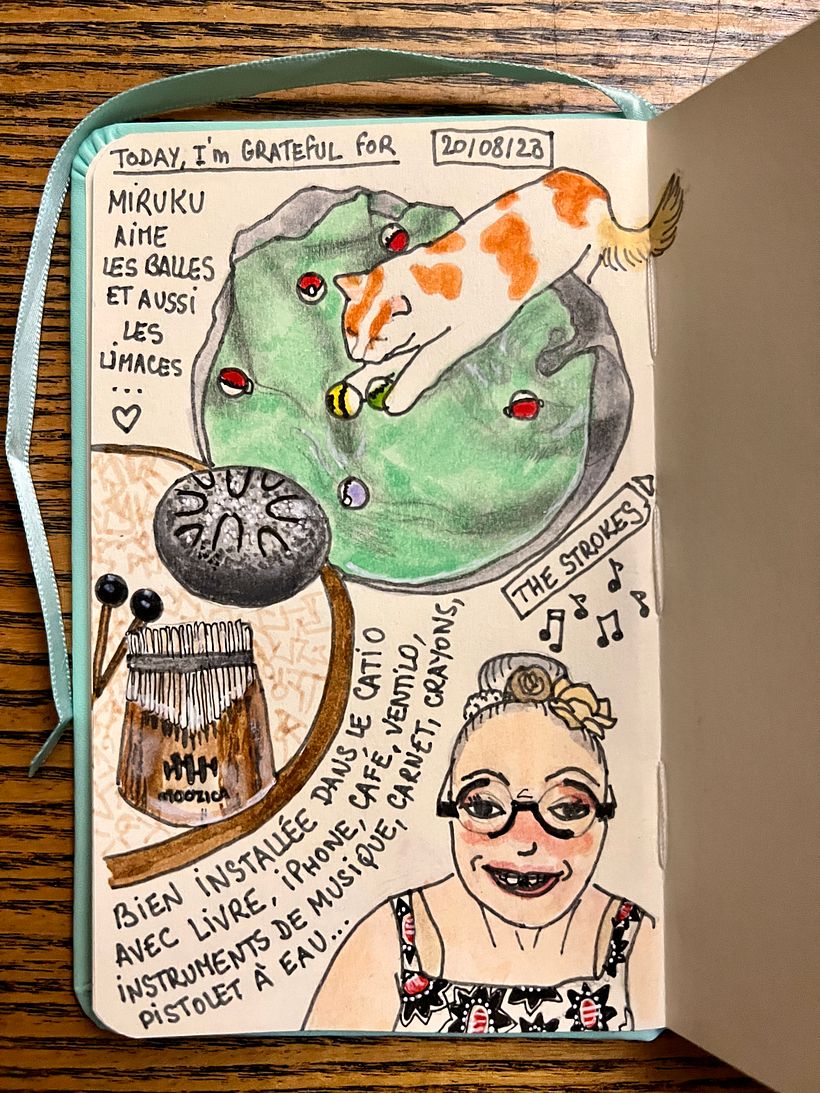 TODAY, I'm GRATEFUL FOR
20/08/23
MiRUKU
AiME
LES BALLES
ET AUSSi
LES
LiMACES
...
THE STROKES
MOOZICA
BiEN iNSTALLÉE DANS LE CATiO
AVEC LiVRE, iPHONE, CAFÉ, VENTiLO,
iNSTRUMENTS DE MUSiQUE, CARNET, CRAYONS,
PiSTOLET À EAU...